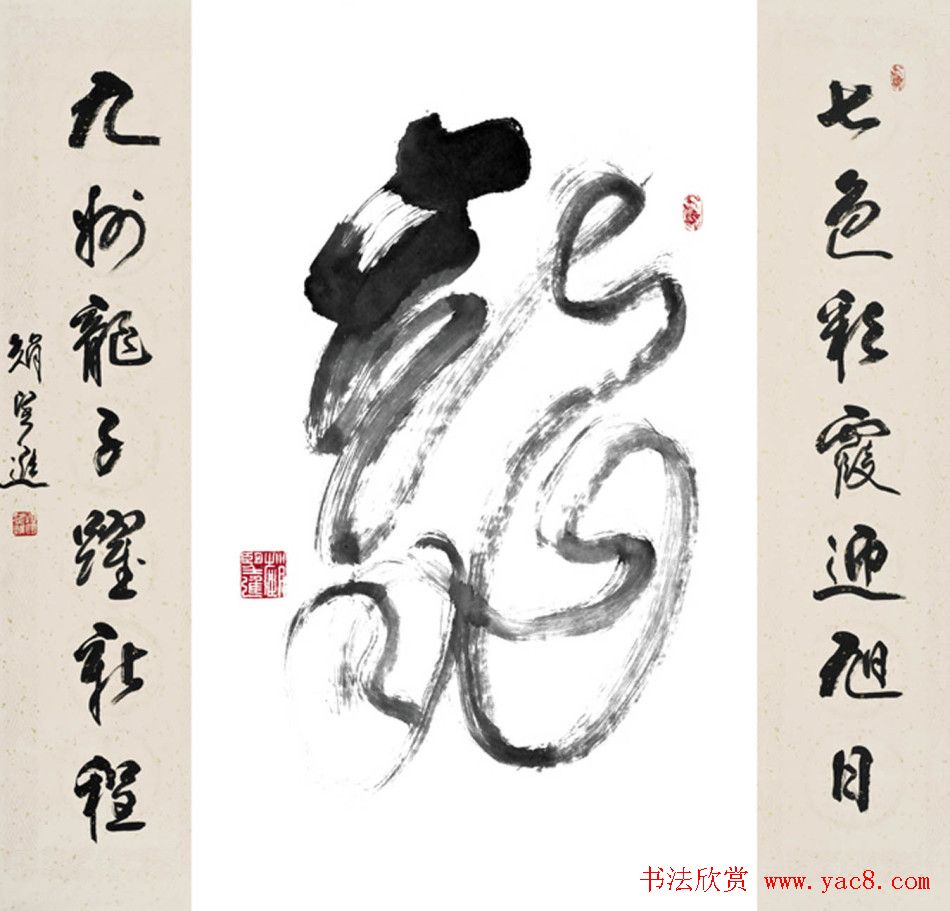 七色彩霞迎旭日
龍
九州龍子躍新程
书法欣赏 www.yac8.com